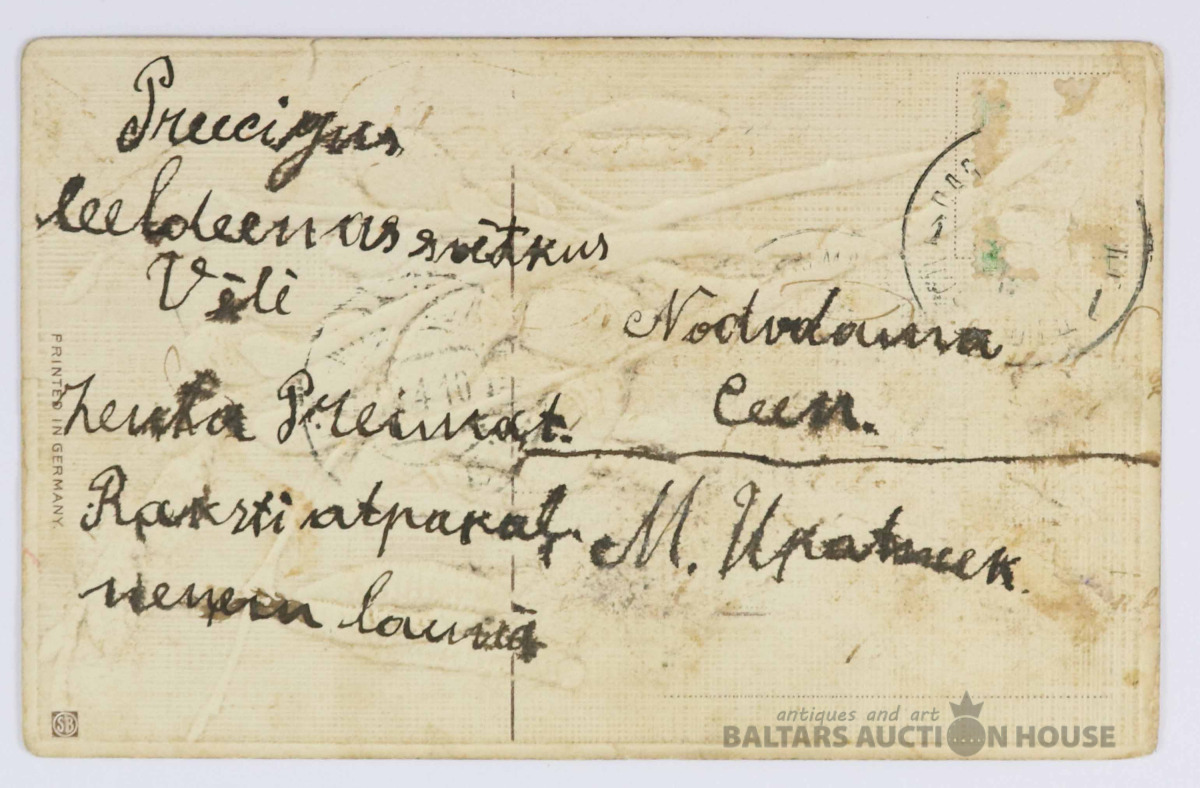 Preecigus
leeldeenas svētkus
Vēlē
Zenta Preimat.
Raksti atpakaļ.
neņem launā
Nodvdama
Ceen.
M. Upatneek.
PRINTED IN GERMANY.
SB
4 10
antiques and art
BALTARS AUCTION HOUSE